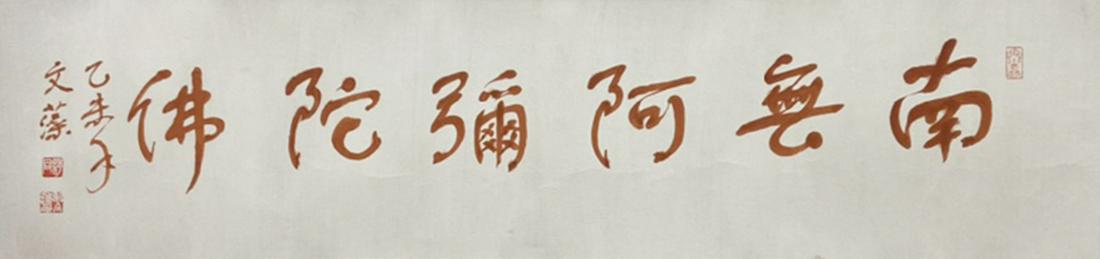 南無阿彌陀佛
乙未年
文藻